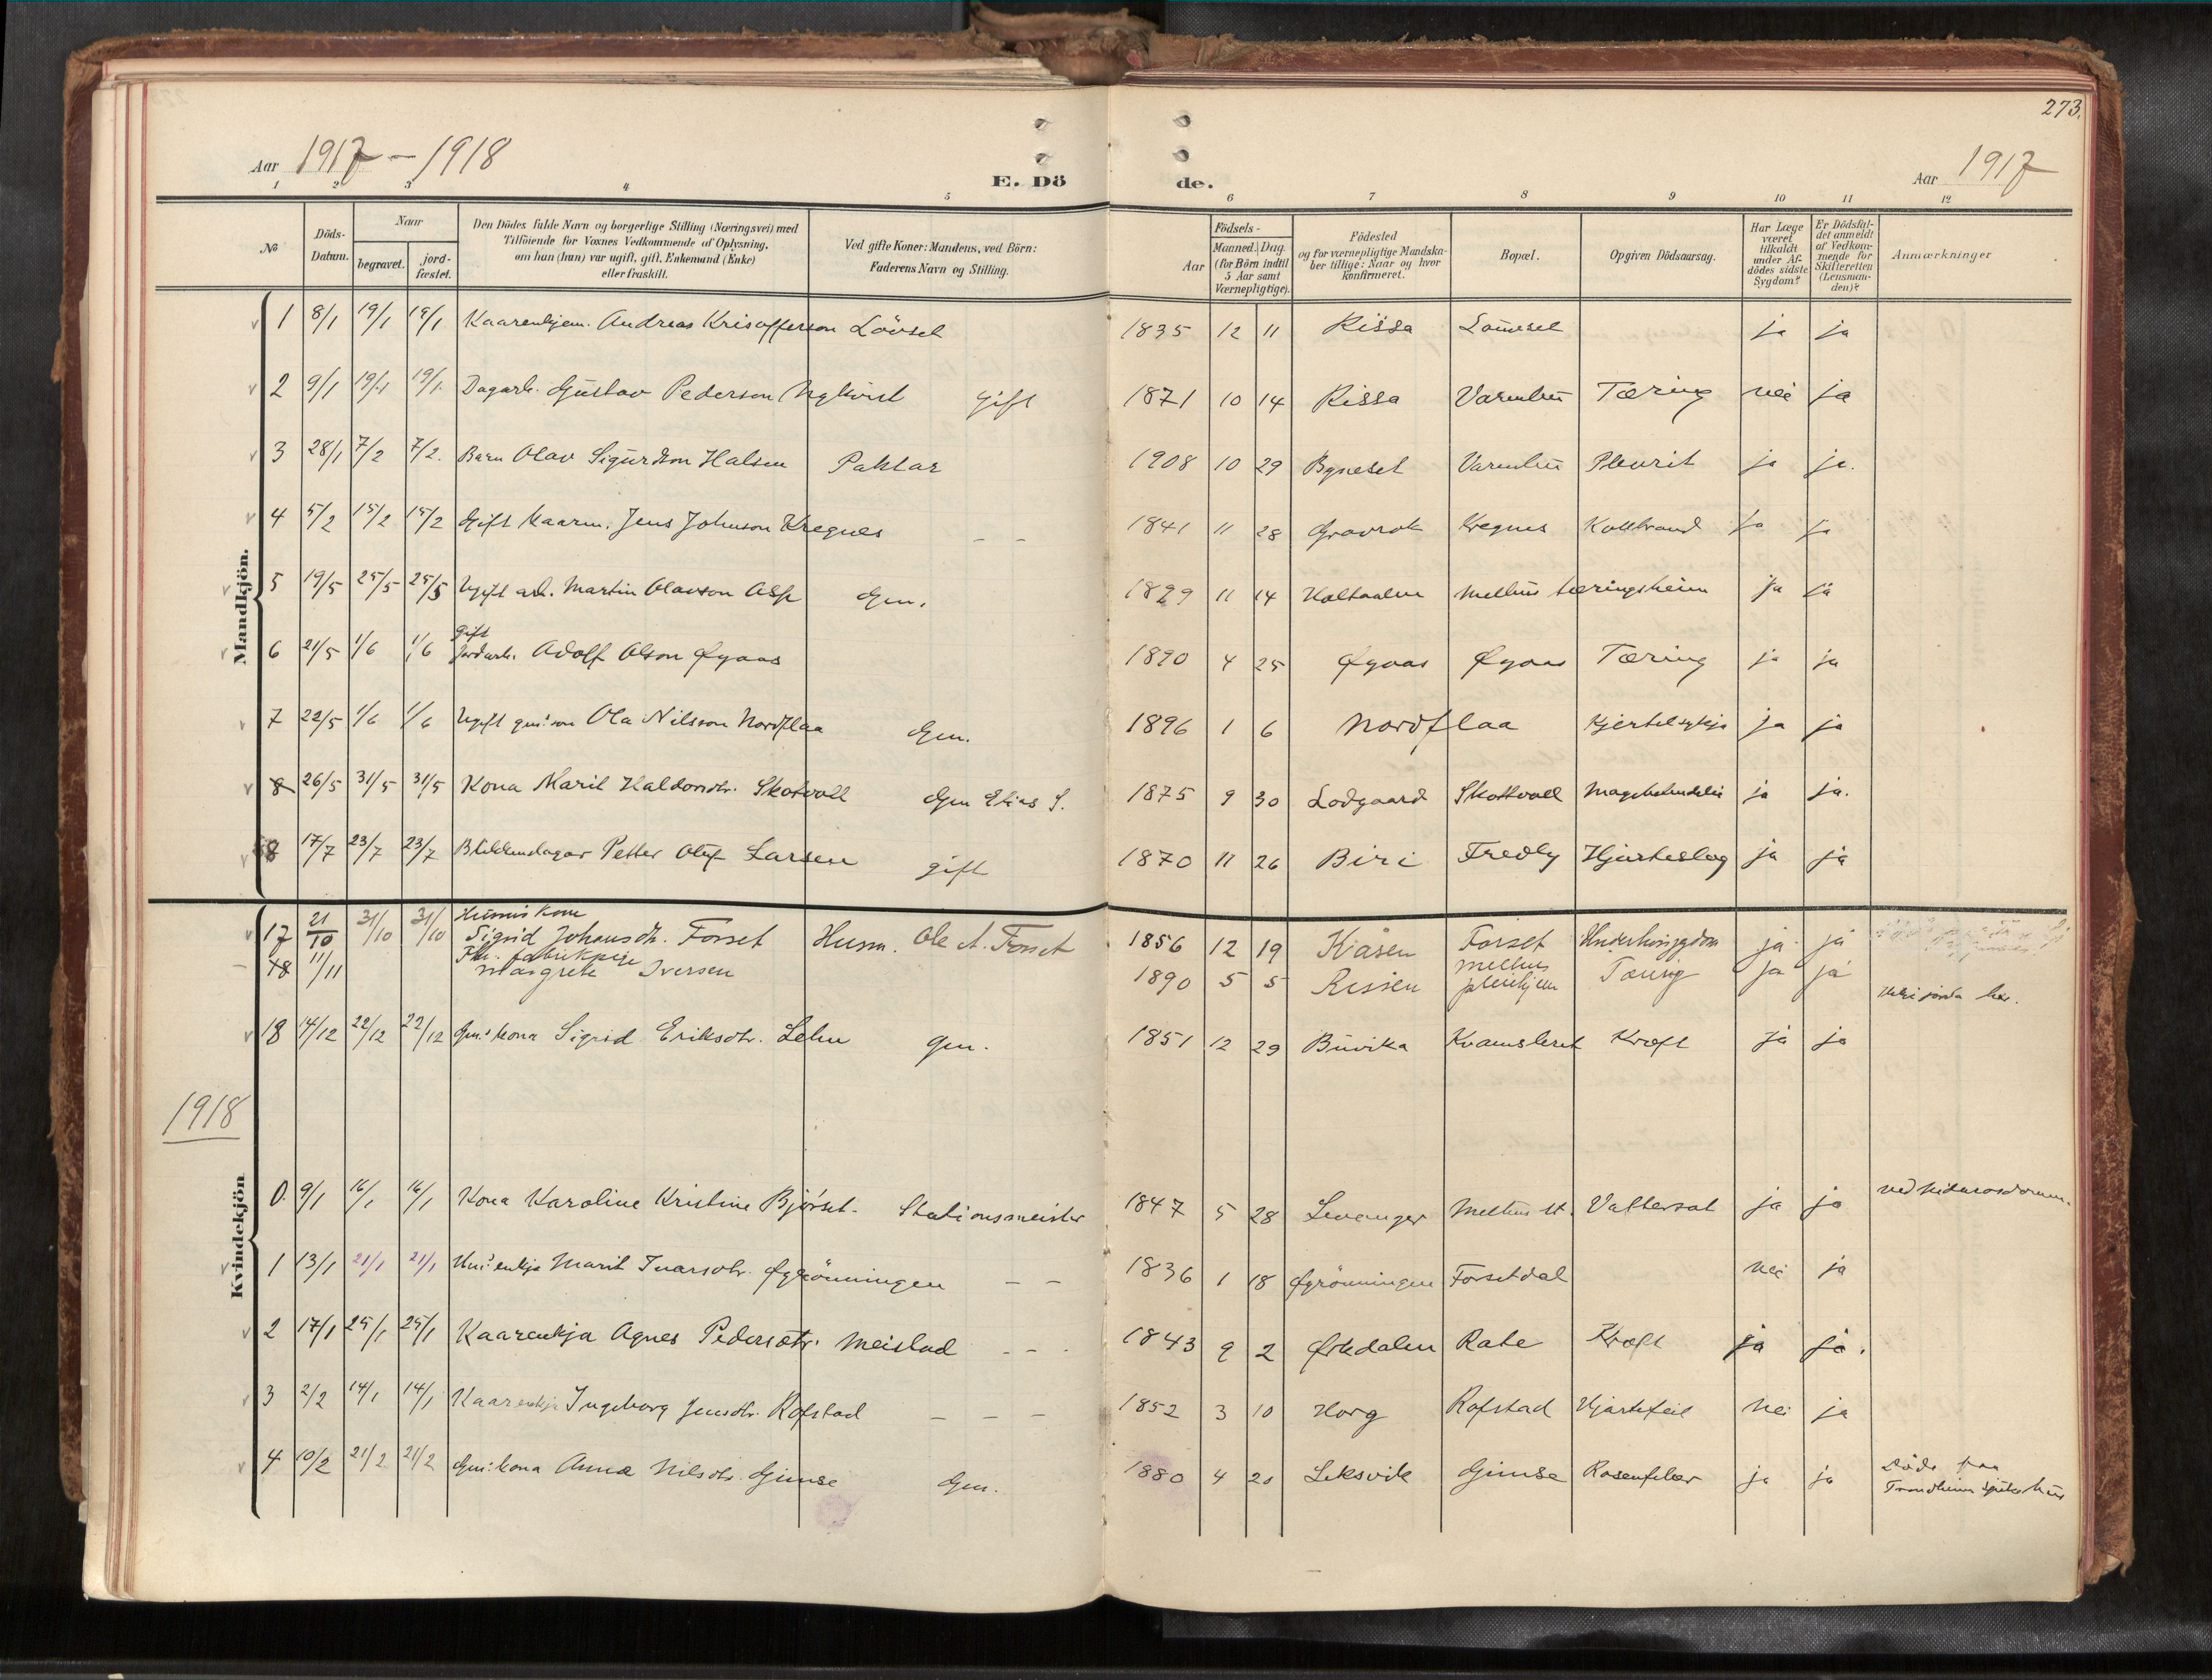 273.
Aar 1917 - 1918
E. Dö de.
Aar 1917
1 2 3 4 5 6 7 8 9 10 11 12
№
Döds-Datum.
Naar
begravet.
jord-fæstet.
Den Dödes fulde Navn og borgerlige Stilling (Næringsvei) med
Tilföiende for Voxnes Vedkommende af Oplysning,
om han (hun) var ugift, gift, Enkemand (Enke)
eller fraskilt.
Ved gifte Koner: Mandens, ved Börn:
Faderens Navn og Stilling.
Födsels-
Aar
Maaned. Dag.
(for Börn indtil
5 Aar samt
Værnepligtige).
Födested
og for værnepligtige Mandska-
ber tillige: Naar og hvor
konfirmeret.
Bopæl.
Opgiven Dödsaarsag.
Har Læge
været
tilkaldt
under Af-
dödes sidste
Sygdom?
Er Dödsfal-
det anmeldt
af Vedkom-
mende for
Skifteretten
(Lensman-
den)?
Anmærkninger
Mandkjön.
1 8/1 19/1 19/1 Kaarenkjem. Andreas Krisofferson Lövset 1835 12 11 Rissa ja ja
2 9/1 19/1 19/1. Dagarb. Gustav Pederson Nykvist gift 1871 10 14 Rissa Varmbu Tæring nei ja
3 28/1 7/2 7/2. Barn Olav Sigurdson Halsen Paktar 1908 10 29 Byneset Varmbu Pleurit ja ja.
4 5/2 15/2 15/2 Gift kaarm. Jens Johnson Kregnes - - 1841 11 28 Gravrok Kregnes Kollbrand ja ja
5 19/5 25/5 25/5 Ugift arb. Martin Olavson Asp Gm. 1899 11 14 Holtaalen Melhus tæringsheim ja ja
6 21/5 1/6 1/6 gift Jordarb. Adolf Olson Øyaas 1890 4 25 Øyaas Øyaas Tæring ja ja
7 22/5 1/6 1/6 Ugift gm:son Ola Nilsson Nordflaa Gm. 1896 1 6 Nordflaa Kjertelsykja ja ja
8 26/5 31/5 31/5 Kona Marit Haldorsdtr. Skotvoll Gm Elias S. 1875 9 30 Lodgaard Skottvoll ja ja.
8 17/7 23/7 23/7 Blikkenslagar Petter Oluf Larsen gift 1870 11 26 Biri Fredly Hjarteslag ja ja
17 21/10 31/10 31/10 Husmis kone
Sigrid Johansdtr. Forset Husm. Ole A. Forset 1856 12 19 Kåsen Forset Underlivssygdom ja ja
18 11/11 Frk. fabrikpige
Margrete Iversen 1890 5 5 Rissen Melhus pleiehjem Tæring ja ja Ikki jorda her.
18 14/12 22/12 22/12 Gm:kona Sigrid Eriksdtr. Lehn gm. 1851 12 29 Buvika Kvamsleret Kræft ja ja
1918
Kvindekjön
0. 9/1 16/1 16/1 Kona Karoline Kristine Bjørset. Stationsmeister 1847 5 28 Levanger Melhus st. Vattersot ja ja ved Nidarosdomen.
1 13/1 21/1 21/1 Hm:enkja Marit Ivarsdtr. Øygrönningen - - 1836 1 18 Øygrönningen Forsetdal nei ja
2 17/1 25/1 25/1 Kaarenkja Agnes Pedersdtr. Meistad - - - 1843 9 2 Ørkdalen Rate Kræft ja ja.
3 2/2 14/1 14/1 Kaarenkja Ingeborg Jensdtr. Rofstad - - - 1852 3 10 Horg Rofstad Hjartefeil nei ja
4 10/2 21/2 21/2 Gm:kona Anna Nilsdtr. Gimse Gm. 1880 4 20 Leksvik Gimse Rosenfeber ja ja Döde paa
Trondheim sjukehus